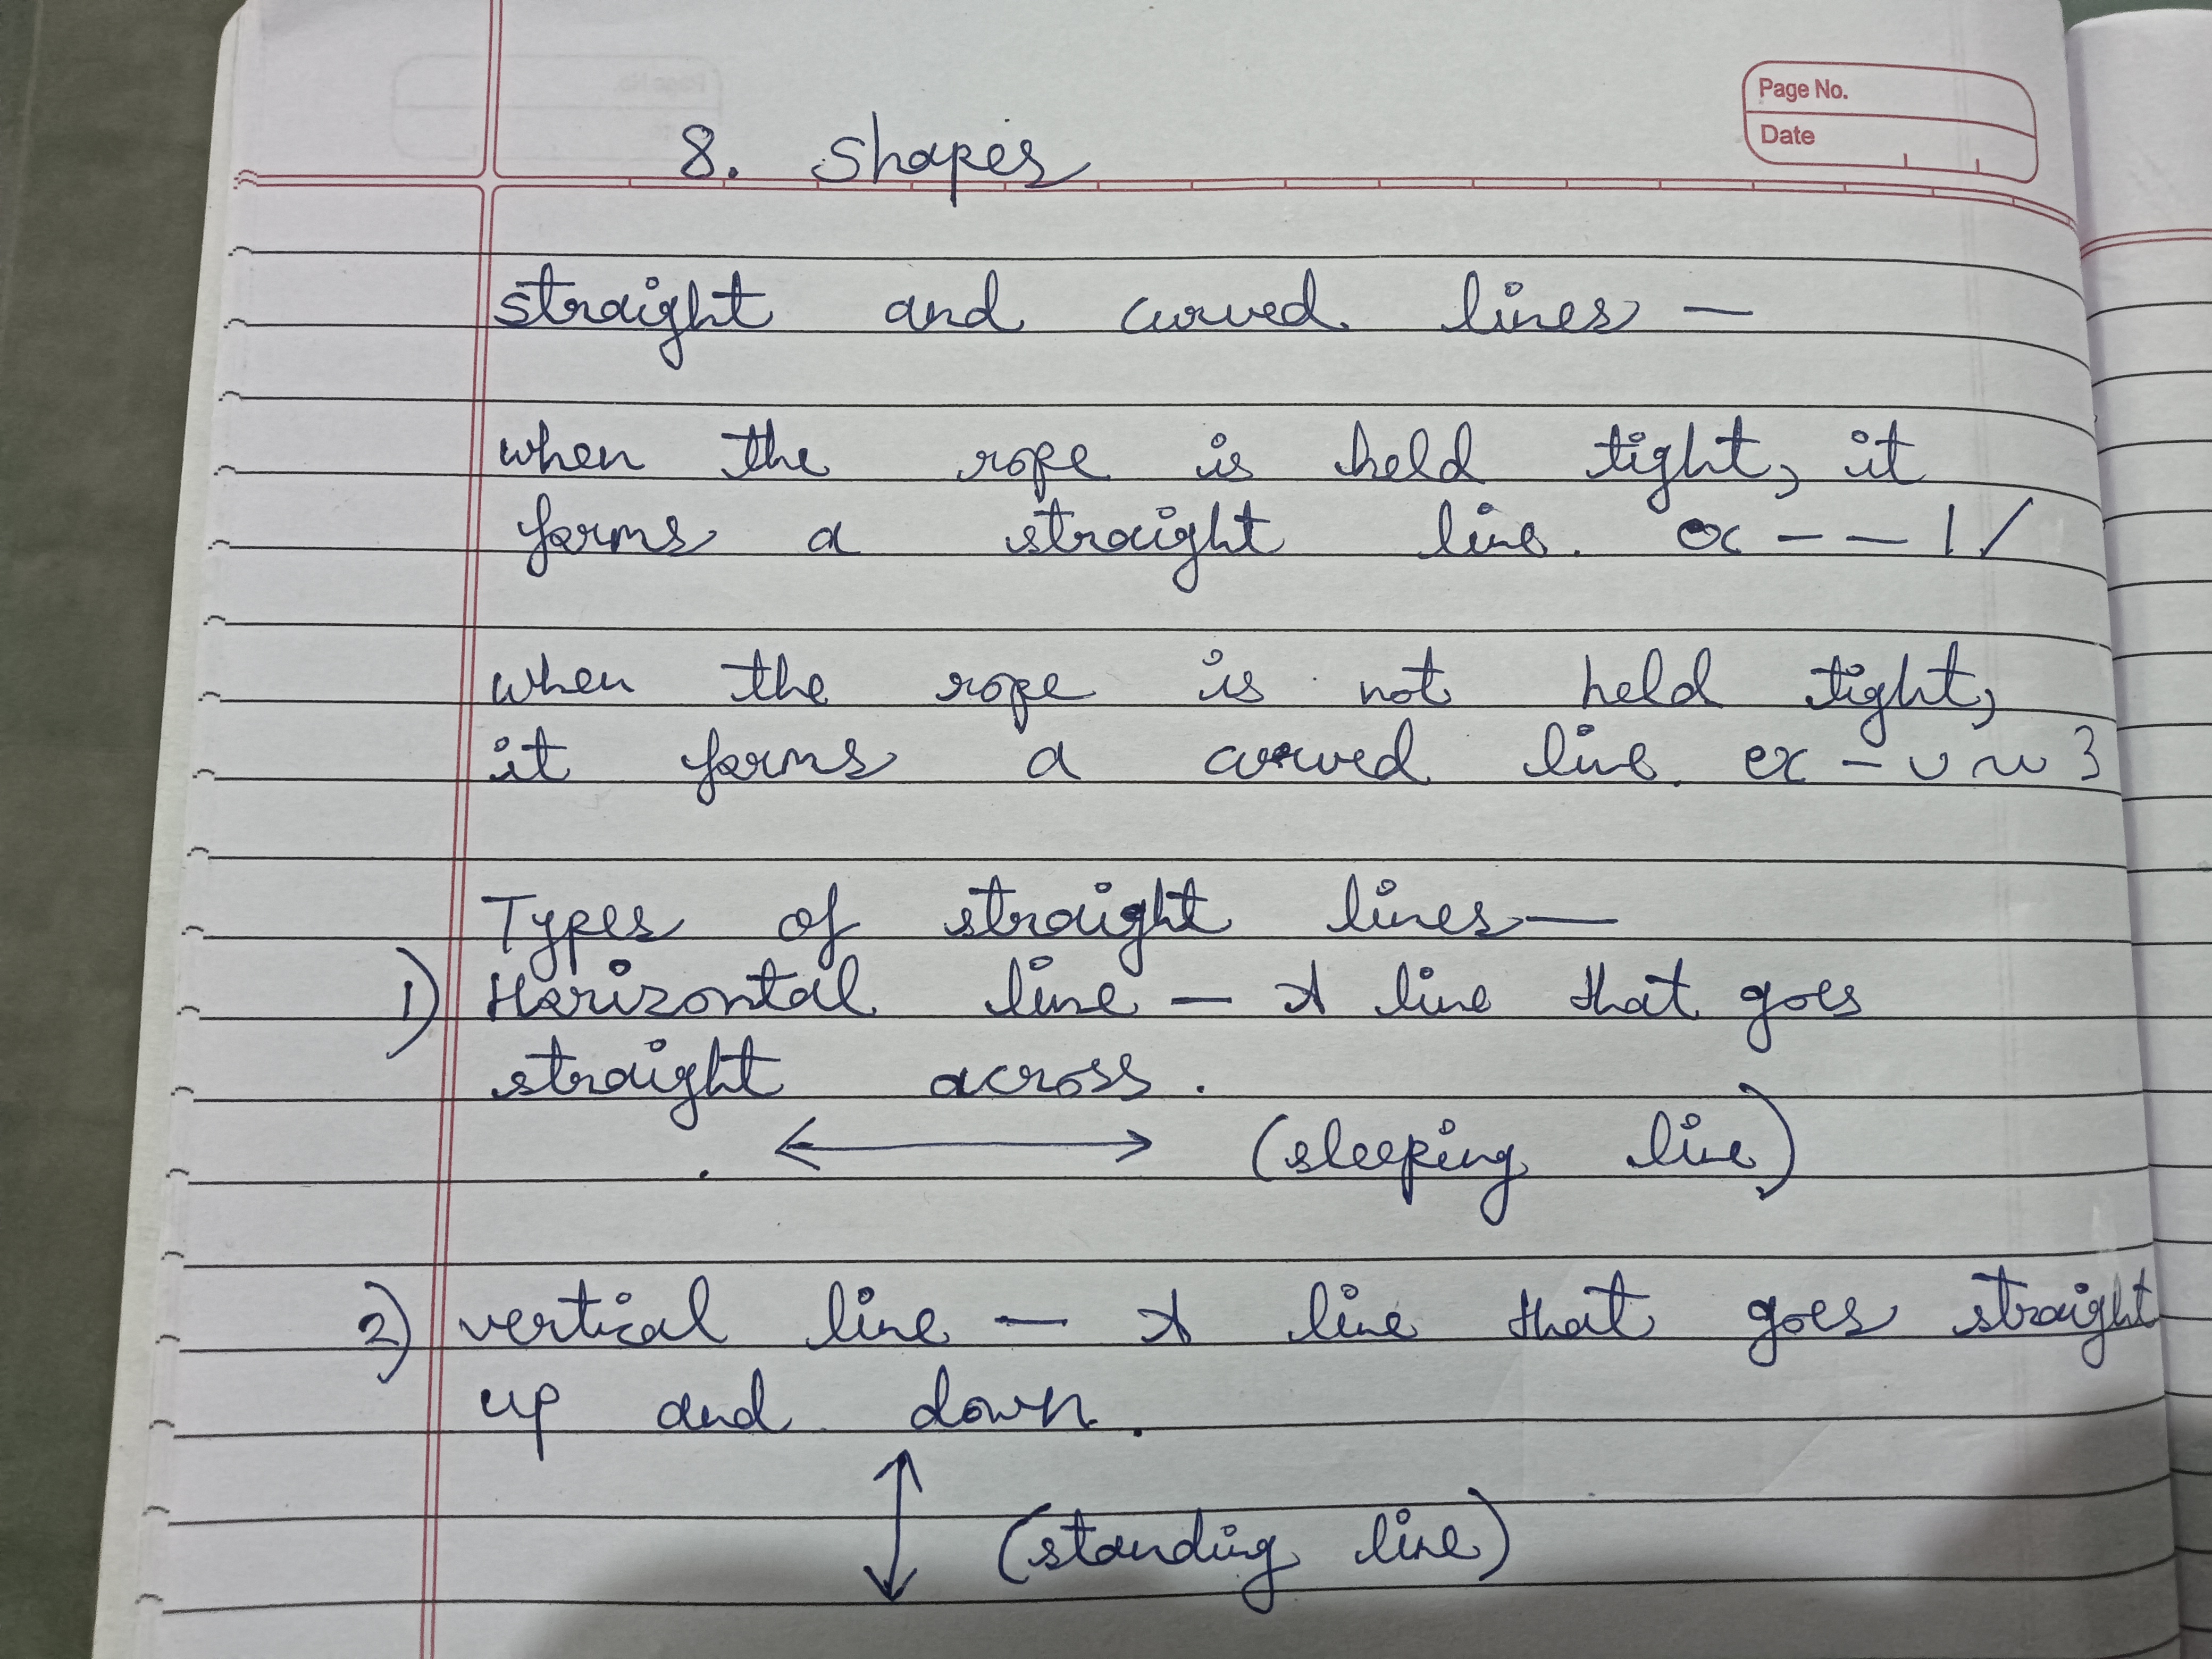 Page No.
Date
8. Shapes
straight and curved lines —
when the rope is held tight, it
forms a straight line. ex - — | /
when the rope is not held tight,
it forms a curved line. ex - ∪ ~ 3
Types of straight lines —
1) Horizontal line — A line that goes
straight across.
(sleeping line)
2) vertical line — A line that goes straight
up and down.
(standing line)